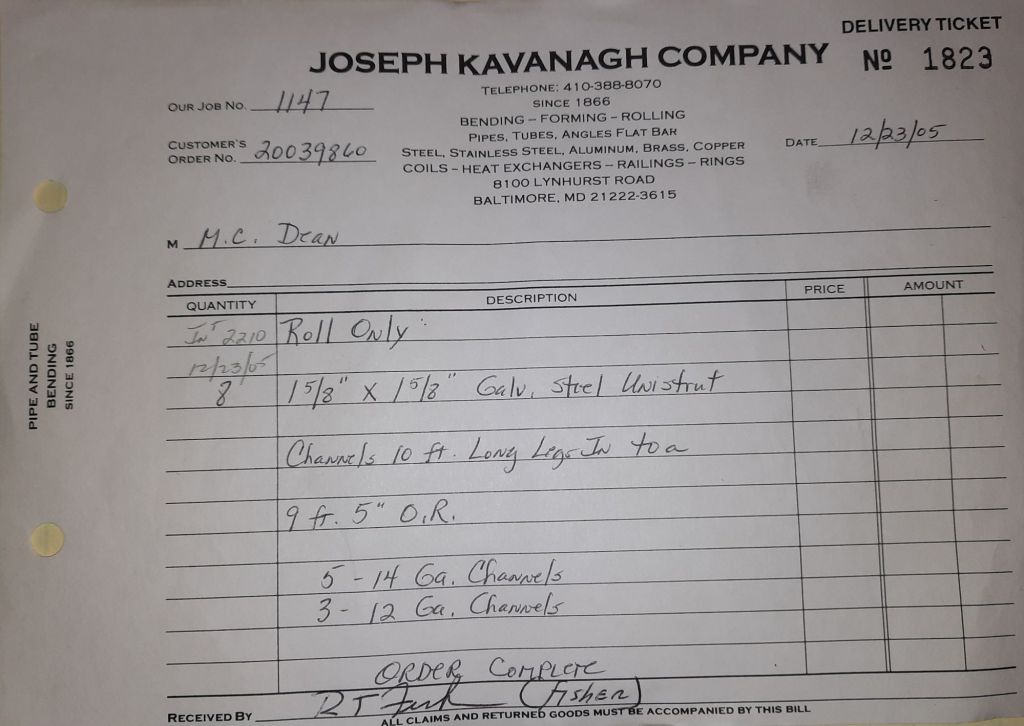 DELIVERY TICKET
JOSEPH KAVANAGH COMPANY
Nº 1823
TELEPHONE: 410-388-8070
SINCE 1866
BENDING – FORMING – ROLLING
PIPES, TUBES, ANGLES FLAT BAR
STEEL, STAINLESS STEEL, ALUMINUM, BRASS, COPPER
COILS – HEAT EXCHANGERS – RAILINGS – RINGS
8100 LYNHURST ROAD
BALTIMORE, MD 21222-3615
OUR JOB NO. 1147
CUSTOMER'S
ORDER NO. 20039860
DATE 12/23/05
M M.C. Dean
ADDRESS
QUANTITY DESCRIPTION PRICE AMOUNT
2210 Roll Only:
12/23/05
8 1 5/8" X 1 5/8" Galv. Steel Unistrut
Channels 10 ft. Long Legs In to a
9 ft. 5" O.R.
5 - 14 Ga. Channels
3 - 12 Ga. Channels
ORDER COMPLETE
RECEIVED BY (FISHER)
ALL CLAIMS AND RETURNED GOODS MUST BE ACCOMPANIED BY THIS BILL
PIPE AND TUBE
BENDING
SINCE 1866